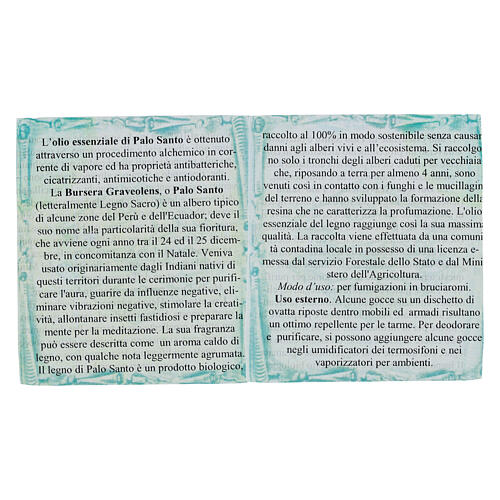 L'olio essenziale di Palo Santo è ottenuto
attraverso un procedimento alchemico in cor-
rente di vapore ed ha proprietà antibatteriche,
cicatrizzanti, antimicotiche e antiodoranti.
La Bursera Graveolens, o Palo Santo
(letteralmente Legno Sacro) è un albero tipico
di alcune zone del Perù e dell'Ecuador; deve il
suo nome alla particolarità della sua fioritura,
che avviene ogni anno tra il 24 ed il 25 dicem-
bre, in concomitanza con il Natale. Veniva
usato originariamente dagli Indiani nativi di
questi territori durante le cerimonie per purifi-
care l'aura, guarire da influenze negative, eli-
minare vibrazioni negative, stimolare la creati-
vità, allontanare insetti fastidiosi e preparare la
mente per la meditazione. La sua fragranza
può essere descritta come un aroma caldo di
legno, con qualche nota leggermente agrumata.
Il legno di Palo Santo è un prodotto biologico,
raccolto al 100% in modo sostenibile senza causar
danni agli alberi vivi e all'ecosistema. Si raccolgo
no solo i tronchi degli alberi caduti per vecchiaia
che, riposando a terra per almeno 4 anni, sono
venuti così in contatto con i funghi e le mucillagin
del terreno e hanno sviluppato la formazione della
resina che ne caratterizza la profumazione. L'olio
essenziale del legno raggiunge così la sua massima
qualità. La raccolta viene effettuata da una comuni
tà contadina locale in possesso di una licenza e-
messa dal servizio Forestale dello Stato e dal Mini
stero dell'Agricoltura.
Modo d'uso: per fumigazioni in bruciaromi.
Uso esterno. Alcune gocce su un dischetto di
ovatta riposte dentro mobili ed armadi risultano
un ottimo repellente per le tarme. Per deodorare
e purificare, si possono aggiungere alcune gocce
negli umidificatori dei termosifoni e nei
vaporizzatori per ambienti.